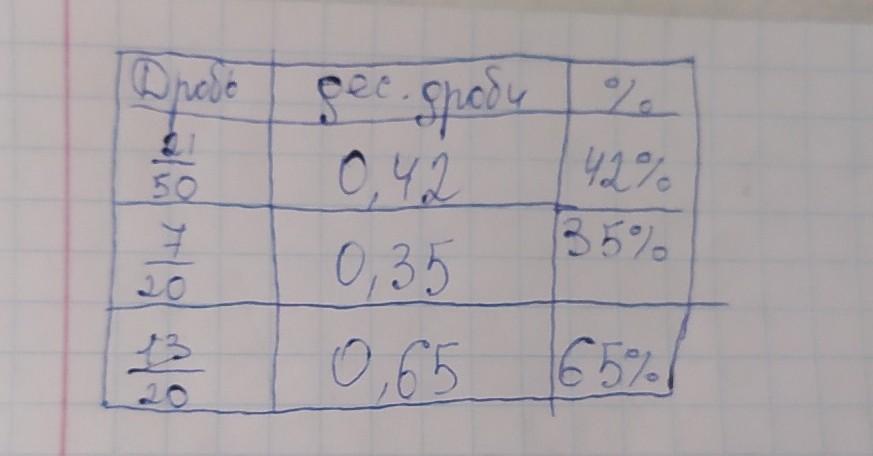 Дробь дес. дроби %
21/50 0,42 42%
7/20 0,35 35%
13/20 0,65 65%